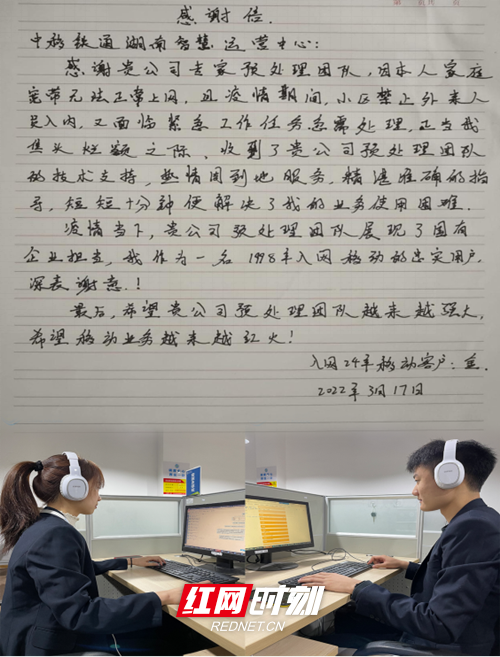 感谢信.
中移铁通湖南智慧运营中心:
感谢贵公司专家预处理团队,因本人家庭
宽带无法正常上网,且疫情期间,小区禁止外来人
员入内,又面临紧急工作任务急需处理,正当我
焦头烂额之际,收到了贵公司预处理团队
的技术支持,热情周到地服务,精湛准确的指
导,短短十分钟便解决了我的业务使用困难.
疫情当下,贵公司预处理团队展现了国有
企业担当,我作为一名1998年入网移动的忠实用户,
深表谢意!
最后,希望贵公司预处理团队越来越强大,
希望移动业务越来越红火!
入网24年移动客户:
2022年3月17日
红网时刻
REDNET.CN